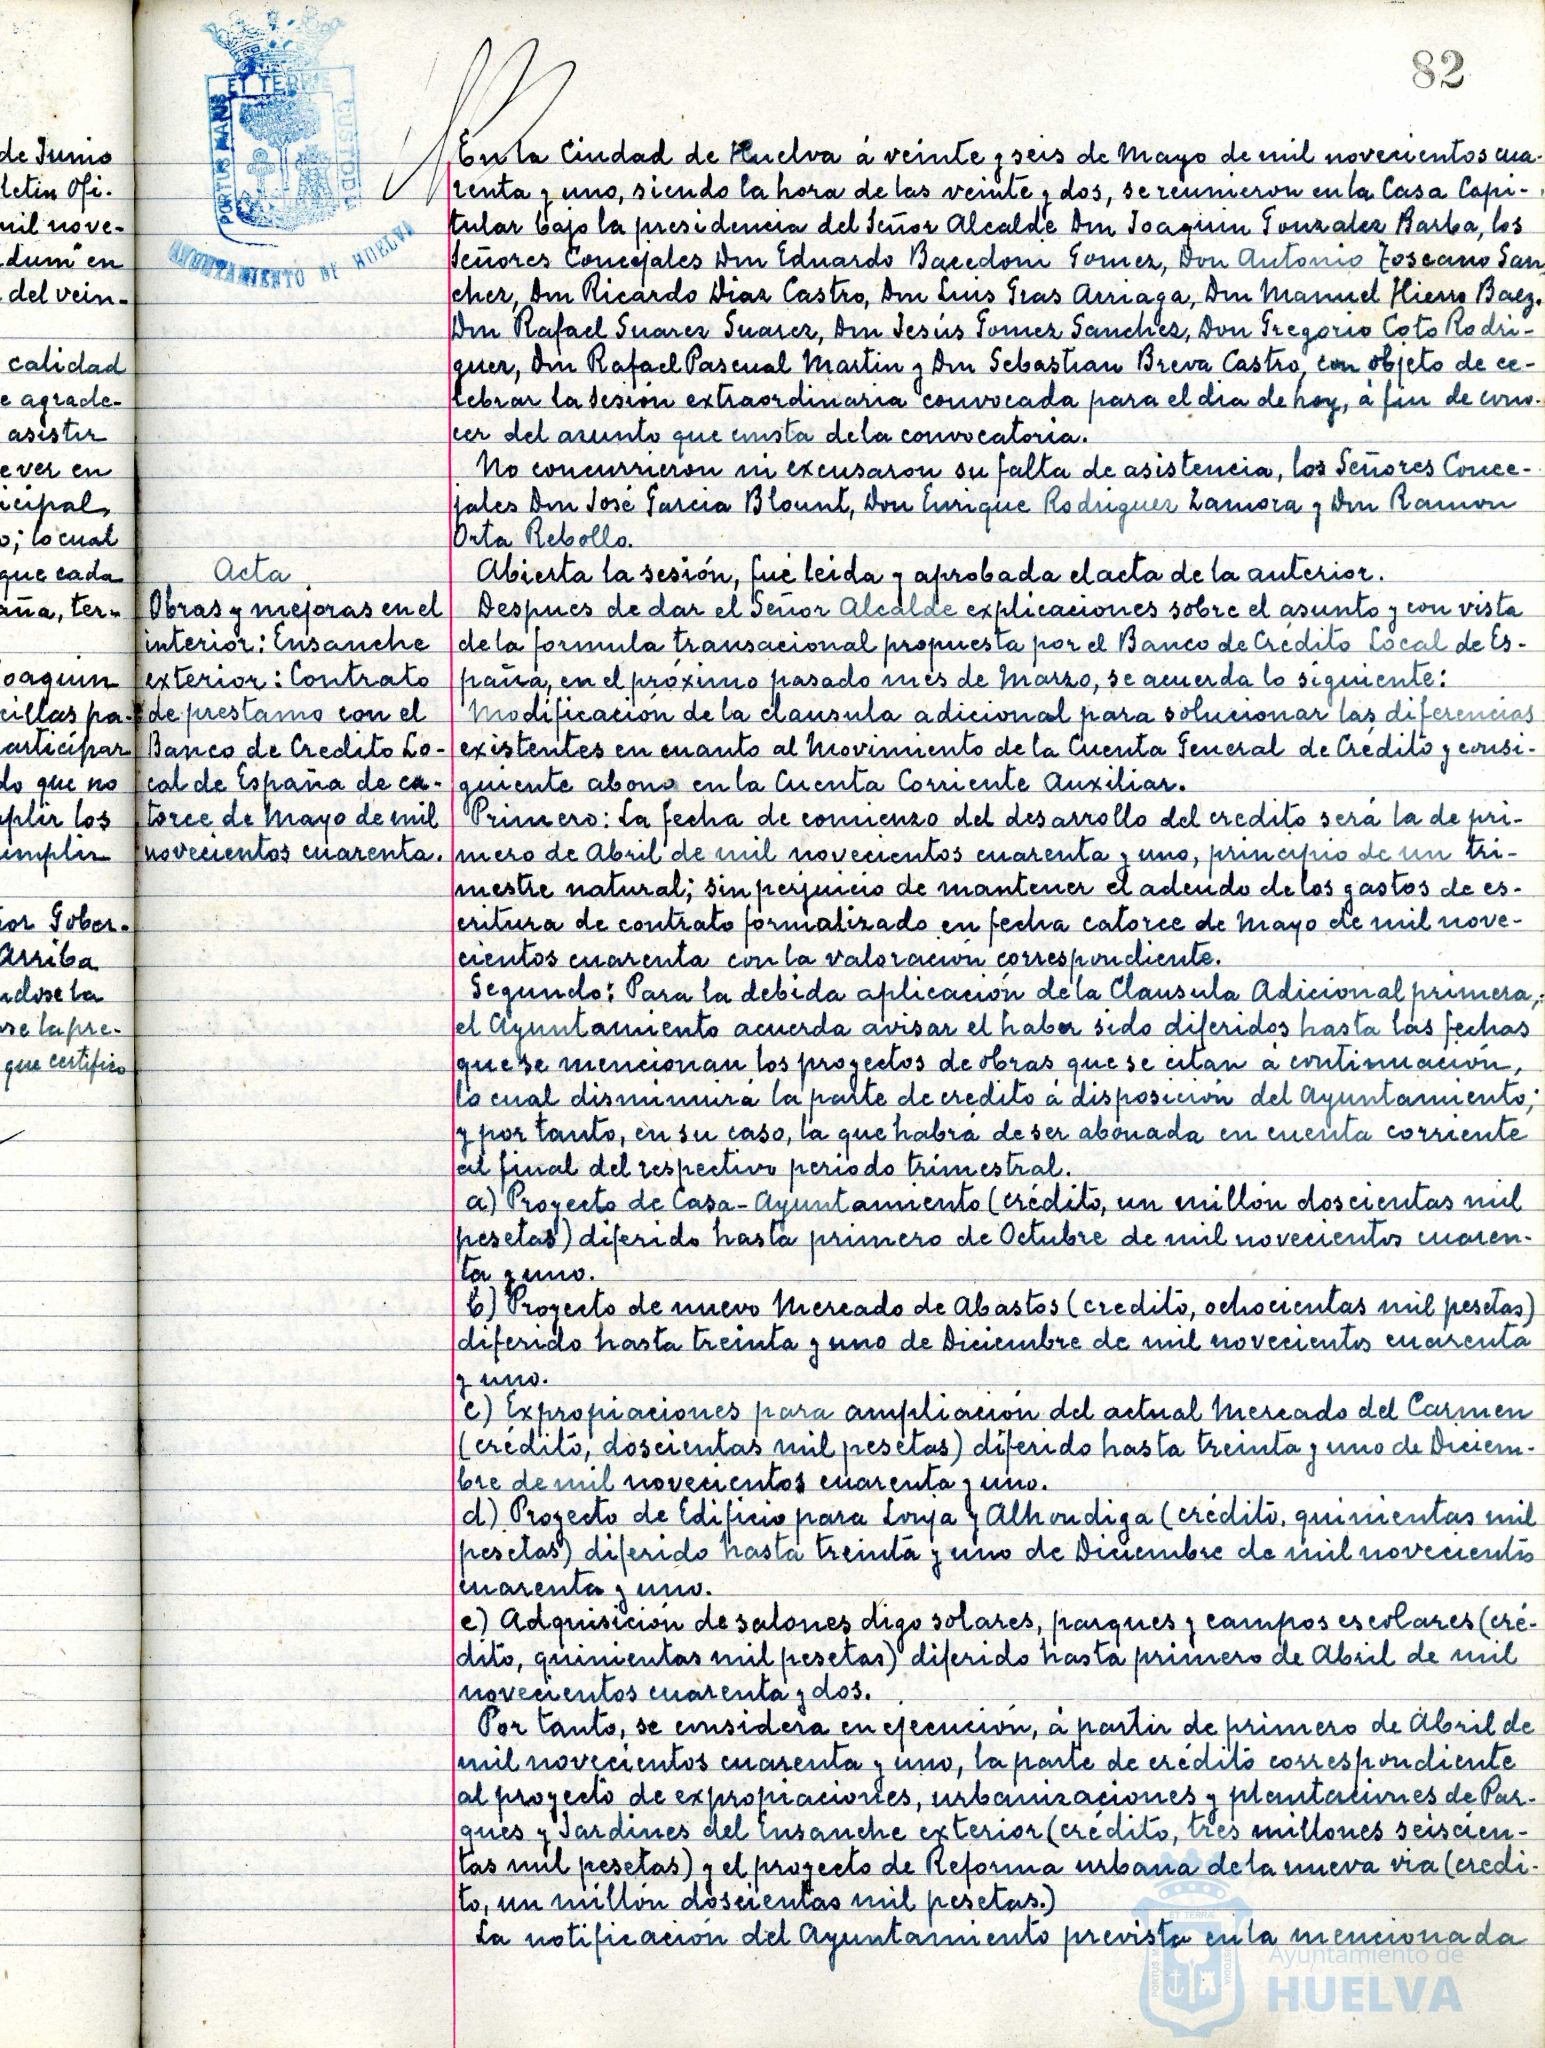 82
PORTUS MARIS ET TERRE CUSTODIA
AYUNTAMIENTO DE HUELVA
de Junio
letin Ofi-
mil nove-
dum" en
del vein-
calidad
e agrade-
asistir
ever en
icipal,
o; lo cual
que cada
aña, ter-
oaquin
cillas pa-
articipar
do que no
mplir los
umplir
or Gober-
Arriba
ndose la
se la pre-
que certifico
Acta.
Obras y mejoras en el
interior: Ensanche
exterior: Contrato
de prestamo con el
Banco de Credito Lo-
cal de España de ca-
torce de Mayo de mil
novecientos cuarenta.
En la Ciudad de Huelva á veinte y seis de Mayo de mil novecientos cua-
renta y uno, siendo la hora de las veinte y dos, se reunieron en la Casa Capi-
tular bajo la presidencia del Señor Alcalde Don Joaquin Gonzalez Barba, los
Señores Concejales Don Eduardo Bacedoni Gomez, Don Antonio Toscano San-
chez, Don Ricardo Diaz Castro, Don Luis Gras Arriaga, Don Manuel Hierro Baez,
Don Rafael Suarez Suarez, Don Jesús Gomez Sanchez, Don Gregorio Coto Rodri-
guez, Don Rafael Pascual Martin y Don Sebastian Breva Castro, con objeto de ce-
lebrar la sesión extraordinaria convocada para el dia de hoy, á fin de cono-
cer del asunto que consta de la convocatoria.
No concurrieron ni excusaron su falta de asistencia, los Señores Conce-
jales Don José Garcia Blount, Don Enrique Rodriguez Zamora y Don Ramon
Orta Rebollo.
Abierta la sesión, fué leida y aprobada el acta de la anterior.
Despues de dar el Señor Alcalde explicaciones sobre el asunto y con vista
de la formula transacional propuesta por el Banco de Crédito Local de Es-
paña, en el próximo pasado mes de Marzo, se acuerda lo siguiente:
Modificación de la clausula adicional para solucionar las diferencias
existentes en cuanto al Movimiento de la Cuenta General de Crédito y consi-
guiente abono en la Cuenta Corriente Auxiliar.
Primero: La fecha de comienzo del desarrollo del credito será la de pri-
mero de Abril de mil novecientos cuarenta y uno, principio de un tri-
mestre natural; sin perjuicio de mantener el adeudo de los gastos de es-
critura de contrato formalizado en fecha catorce de Mayo de mil nove-
cientos cuarenta con la valoración correspondiente.
Segundo: Para la debida aplicación de la Clausula Adicional primera,
el Ayuntamiento acuerda avisar el haber sido diferidos hasta las fechas
que se mencionan los proyectos de obras que se citan á continuación,
lo cual disminuirá la parte de credito á disposición del Ayuntamiento;
y por tanto, en su caso, la que habrá de ser abonada en cuenta corriente
al final del respectivo periodo trimestral.
a) Proyecto de Casa-Ayuntamiento (crédito, un millón doscientas mil
pesetas) diferido hasta primero de Octubre de mil novecientos cuaren-
ta y uno.
b) Proyecto de nuevo Mercado de Abastos (credito, ochocientas mil pesetas)
diferido hasta treinta y uno de Diciembre de mil novecientos cuarenta
y uno.
c) Expropiaciones para ampliación del actual Mercado del Carmen
(crédito, doscientas mil pesetas) diferido hasta treinta y uno de Diciem-
bre de mil novecientos cuarenta y uno.
d) Proyecto de Edificio para Lonja y Alhondiga (crédito, quinientas mil
pesetas) diferido hasta treinta y uno de Diciembre de mil novecientos
cuarenta y uno.
e) Adquisición de salones digo solares, parques y campos escolares (cré-
dito, quinientas mil pesetas) diferido hasta primero de Abril de mil
novecientos cuarenta y dos.
Por tanto, se considera en ejecución, á partir de primero de Abril de
mil novecientos cuarenta y uno, la parte de crédito correspondiente
al proyecto de expropiaciones, urbanizaciones y plantaciones de Par-
ques y Jardines del Ensanche exterior (crédito, tres millones seiscien-
tas mil pesetas) y el proyecto de Reforma urbana de la nueva via (credi-
to, un millón doscientas mil pesetas.)
La notificación del Ayuntamiento prevista en la mencionada
Ayuntamiento de
HUELVA